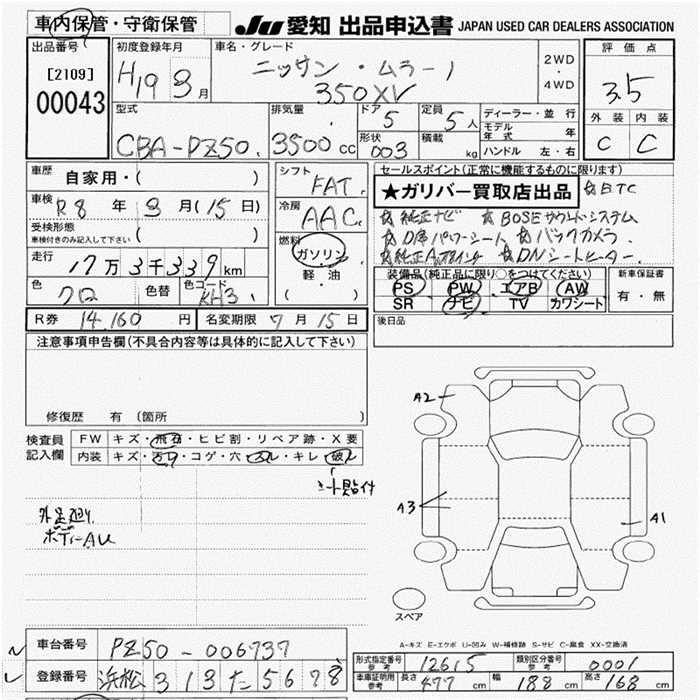 車内保管・守衛保管
JU 愛知 出品申込書 JAPAN USED CAR DEALERS ASSOCIATION
出品番号
[2109]
00043
初度登録年月
H19 3月
車名・グレード
ニッサン・ムラーノ
350XV
2WD
・
4WD
評価点
3.5
外装 内装
C C
型式
CBA-PZ50
排気量
3500cc
ドア
5
形状
003
定員
5人
積載
kg
ディーラー・並行
モデル年式 年
ハンドル 左・右
車歴
自家用・( )
車検
R8年3月(15日)
受検形態
車検付きのみ記入して下さい ( )
走行
17万3千339km
色
クロ
色替
色コード
KH3
シフト
FAT
冷房
AAC
燃料
ガソリン
・
軽・油
( )
R券 14,160円
名変期限 7月15日
セールスポイント(正常に機能するものに限ります)
★ガリバー買取店出品 ☆ETC
☆純正ナビ ☆BOSEサウンドシステム
☆D席パワーシート ☆バックカメラ
☆純正Aアルミ ☆DNシートヒーター
装備品(純正品に限り○をつけてください)
PS PW エアB AW
SR ナビ TV カワシート
新車保証書
有・無
後日品
注意事項申告欄(不具合内容等は具体的に記入して下さい)
修復歴 有 (箇所 )
検査員記入欄
FW キズ・飛石・ヒビ割・リペア跡・X要
内装 キズ・汚れ・コゲ・穴・スレ・キレ・破レ
シート貼付
外足廻り
ボディーAU
A2
A3
A1
スペア
A-キズ E-エクボ U-凹み W-補修跡 S-サビ C-腐食 XX-交換済
車台番号 PZ50-006737
登録番号 浜松 313 た 5678
形式指定番号 参考 12615
類別区分番号 参考 0001
車庫証明用 参考 長さ 477cm 幅 188cm 高さ 168cm